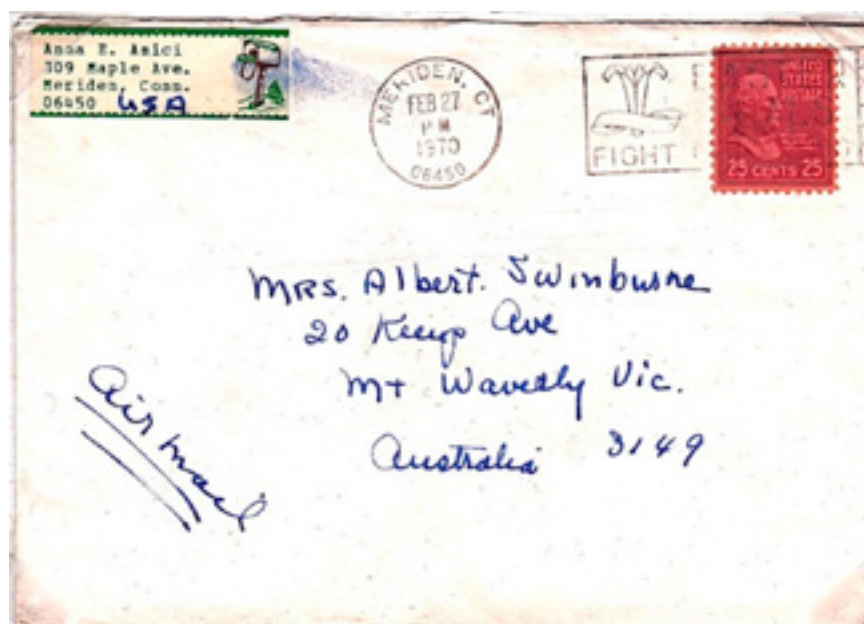 Anna E. Amici
309 Maple Ave.
Meriden, Conn.
06450 USA
MERIDEN, CT
FEB 27
PM
1970
06450
FIGHT
UNITED
STATES
POSTAGE
25 CENTS 25
MRS. Albert. Swinburne
20 Ave
Mt Waverly Vic.
Australia 3149
Air mail